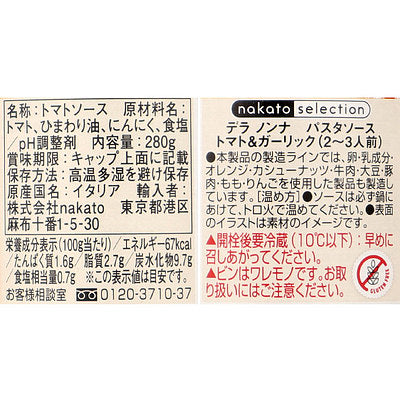 名称:トマトソース 原材料名:
トマト、ひまわり油、にんにく、食塩
/pH調整剤 内容量:280g
賞味期限:キャップ上面に記載
保存方法:高温多湿を避け保存
原産国名:イタリア 輸入者:
株式会社nakato 東京都港区
麻布十番1-5-30
栄養成分表示(100g当たり)/エネルギー67kcal
たんぱく質1.6g/脂質2.7g/炭水化物9.7g
食塩相当量0.7g/※この表示値は目安です。
お客様相談室 0120-3710-37
nakato selection
デラ ノンナ パスタソース
トマト&ガーリック(2〜3人前)
●本製品の製造ラインでは、卵・乳成分・
オレンジ・カシューナッツ・牛肉・大豆・豚
肉・もも・りんごを使用した製品も製造し
ています。[温め方]●ソースは必ず鍋に
あけて、トロ火で温めてください。●表面
のイラストはイメージです。
▲開栓後要冷蔵(10℃以下):早めに
召しあがってください。
▲ビンはワレモノです。お取
り扱いにはご注意ください。
GLUTEN FREE